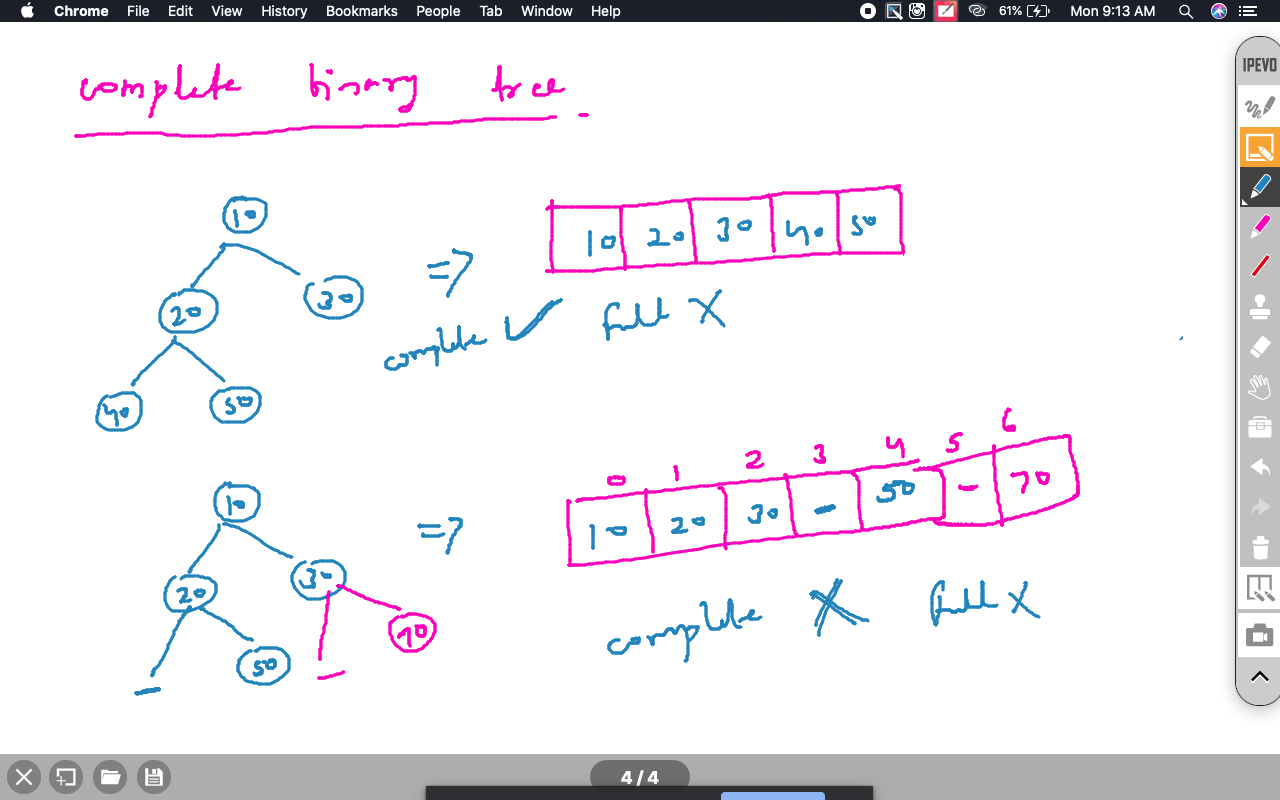 Chrome File Edit View History Bookmarks People Tab Window Help 61% Mon 9:13 AM
IPEVO
complete binary tree.
10
20 30
40 50
=> 10 20 30 40 50
complete ✓ full X
10
20 30
- 50 - 70
=>
0 1 2 3 4 5 6
10 20 30 - 50 - 70
complete X full X
4 / 4